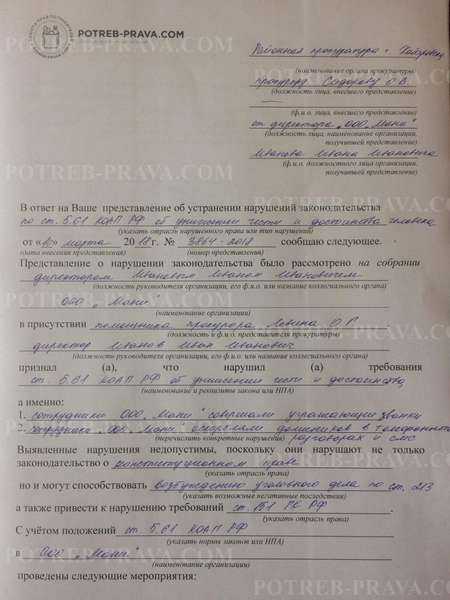 POTREB-PRAVA.COM
Районная прокуратура г. Хабаровск
(наименование органа прокуратуры)
прокурору Сидорову О.В.
(должность лица, внесшего представление)
—
(ф.и.о. лица, внесшего представление)
от директора „ООО „Мани"
(должность лица, наименование организации,
получившей представление)
Иванова Ивана Ивановича
(ф.и.о. должностного лица организации,
получившей представление)
В ответ на Ваше представление об устранении нарушений законодательства
по ст. 5.61 КОАП РФ об унижении чести и достоинства человека
(указать отрасль нарушенного права или тип нарушений)
от « » марта 2018 г. № 3864-2018 сообщаю следующее.
(дата внесения представления) (номер представления)
Представление о нарушении законодательства было рассмотрено на собрании
директором Ивановым Иваном Ивановичем
(должность руководителя организации, его ф.и.о. или название коллегиального органа)
ООО „Мани"
(наименование организации)
в присутствии помощника прокурора О.Р.
(должность и ф.и.о. представителя прокуратуры)
директор Иванов Иван Иванович
(должность руководителя организации, его ф.и.о. или название коллегиального органа)
признал (а), что нарушил (а) требования
ст. 5.61 КОАП РФ об унижении чести и достоинства
(наименование и реквизиты закона или НПА)
а именно:
1. сотрудники ООО „Мани" совершали угрожающие звонки
2. сотрудники „ООО „Мани" оскорбляли должников в телефонных
(перечислить конкретные нарушения) разговорах и смс
Выявленные нарушения недопустимы, поскольку они нарушают не только
законодательство о конституционном праве
(указать отрасль права)
но и могут способствовать возбуждению уголовного дела по ст. 213
(указать возможные негативные последствия)
а также привести к нарушению требований ст. 151 ГК РФ
(указать отрасль права)
С учётом положений ст. 5.61 КОАП РФ
(указать нормы законов или НПА)
в ООО „Мани"
(наименование организации)
проведены следующие мероприятия:
POTREB-PRAVA.COM